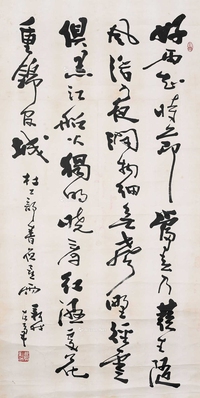 好雨知時節當春乃發生隨
風潛入夜潤物細無聲野徑雲
俱黑江船火獨明曉看紅濕處花
重錦官城
杜工部春夜喜雨